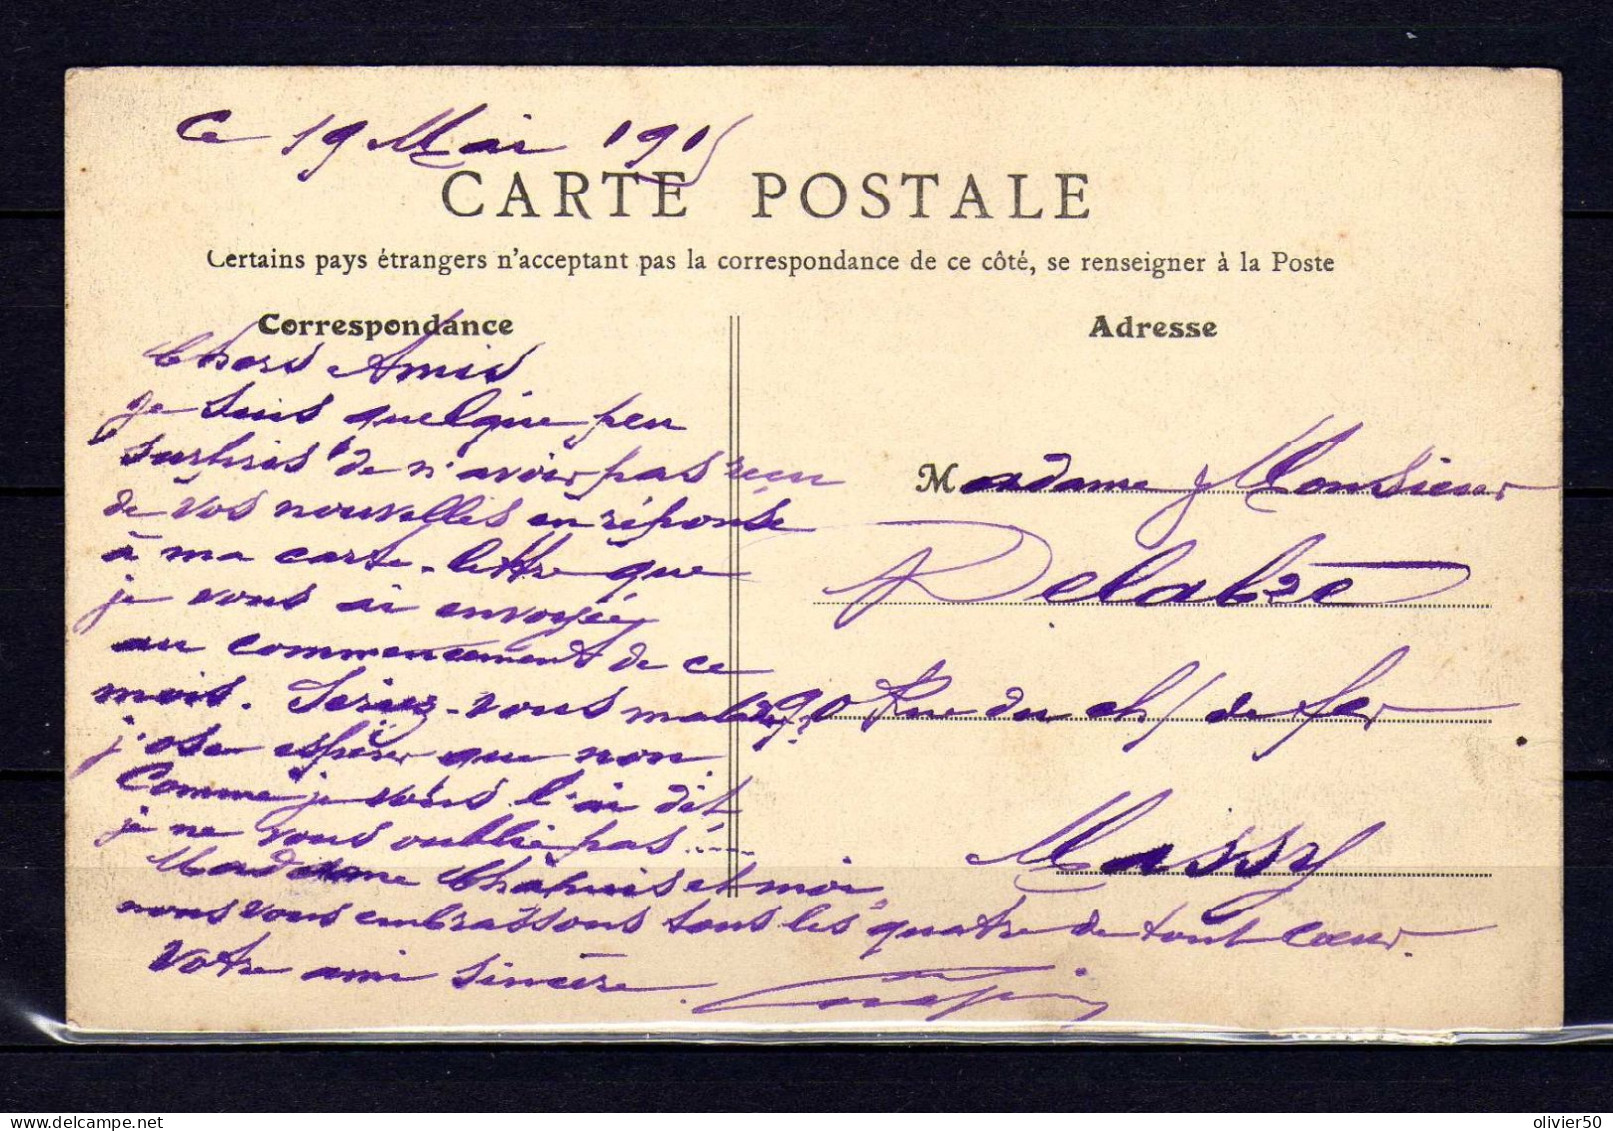 Ce 19 Mai 1915
CARTE POSTALE
Certains pays étrangers n'acceptant pas la correspondance de ce côté, se renseigner à la Poste
Correspondance
Chers Amis
je suis quelque peu
surpris de n'avoir pas reçu
de vos nouvelles en réponse
à ma carte-lettre que
je vous ai envoyée
au commencement de ce
mois. Seriez-vous malades?
j'ose espérer que non
Comme je vous l'ai dit
je ne vous oublie pas!....
Madame Chapuis et moi
nous vous embrassons tous les quatre de tout cœur.
Votre ami sincère.
Adresse
Madame & Monsieur
Delabre
90 Rue du ch/ de fer
Massy
olivier50